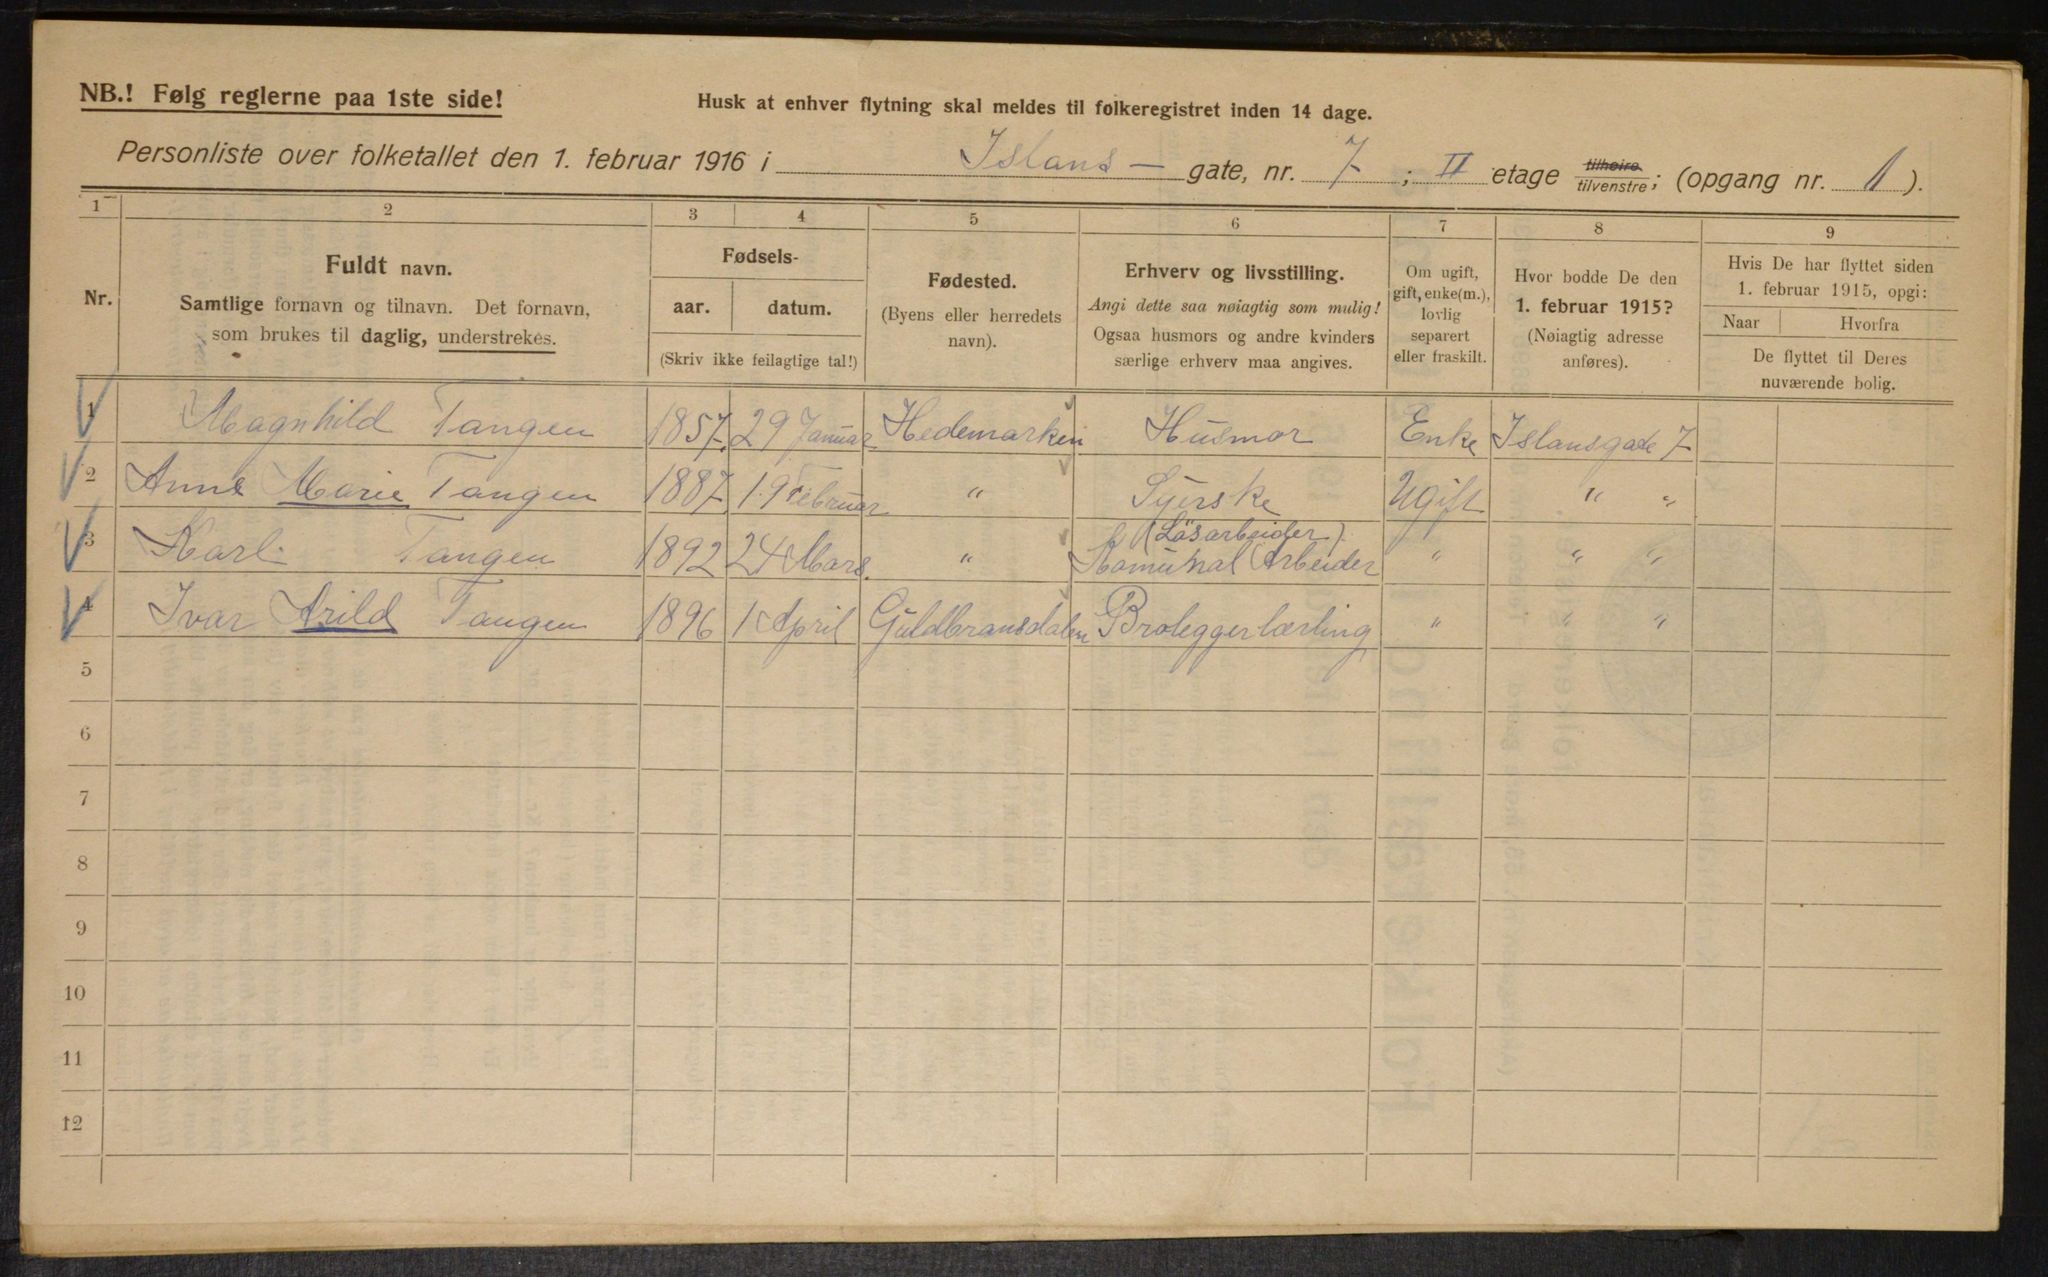 NB.! Følg reglerne paa 1ste side!
Husk at enhver flytning skal meldes til folkeregistret inden 14 dage.
Personliste over folketallet den 1. februar 1916 i Islans — gate, nr. 7 ; II etage tilhøire tilvenstre; (opgang nr. 1 ).
1 2 3 4 5 6 7 8 9
Nr.
Fuldt navn.
Samtlige fornavn og tilnavn. Det fornavn,
som brukes til daglig, understrekes.
Fødsels-
aar. datum.
(Skriv ikke feilagtige tal!)
Fødested.
(Byens eller herredets
navn).
Erhverv og livsstilling.
Angi dette saa nøiagtig som mulig!
Ogsaa husmors og andre kvinders
særlige erhverv maa angives.
Om ugift,
gift, enke(m.),
lovlig
separert
eller fraskilt.
Hvor bodde De den
1. februar 1915?
(Nøiagtig adresse
anføres).
Hvis De har flyttet siden
1. februar 1915, opgi:
Naar Hvorfra
De flyttet til Deres
nuværende bolig.
1 Magnhild Tangen 1857. 29 Januar Hedemarken Husmor Enke Islansgade 7
2 Anne Marie Tangen 1887. 19 Februar " Syerske Ugift " "
(Løsarbeider)
3 Karl Tangen 1892 24 Mars. " Komunal Arbeider " " "
4 Ivar Arild Tangen 1896 1 April Guldbransdalen Broleggerlærling " " "
5
6
7
8
9
10
11
12